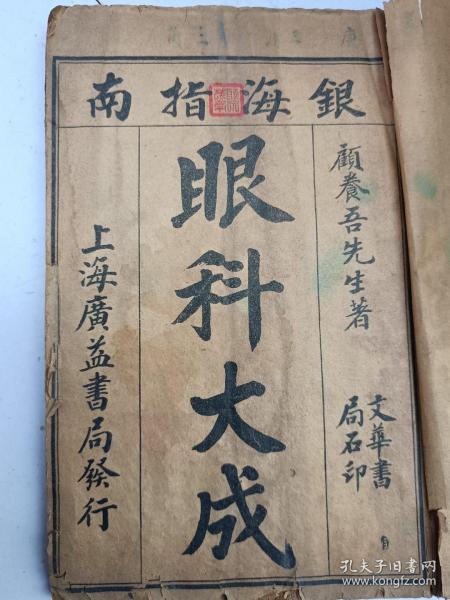 銀海指南
顧養吾先生著
文華書
局石印
眼科大成
上海廣益書局發行
孔夫子旧书网
www.kongfz.com